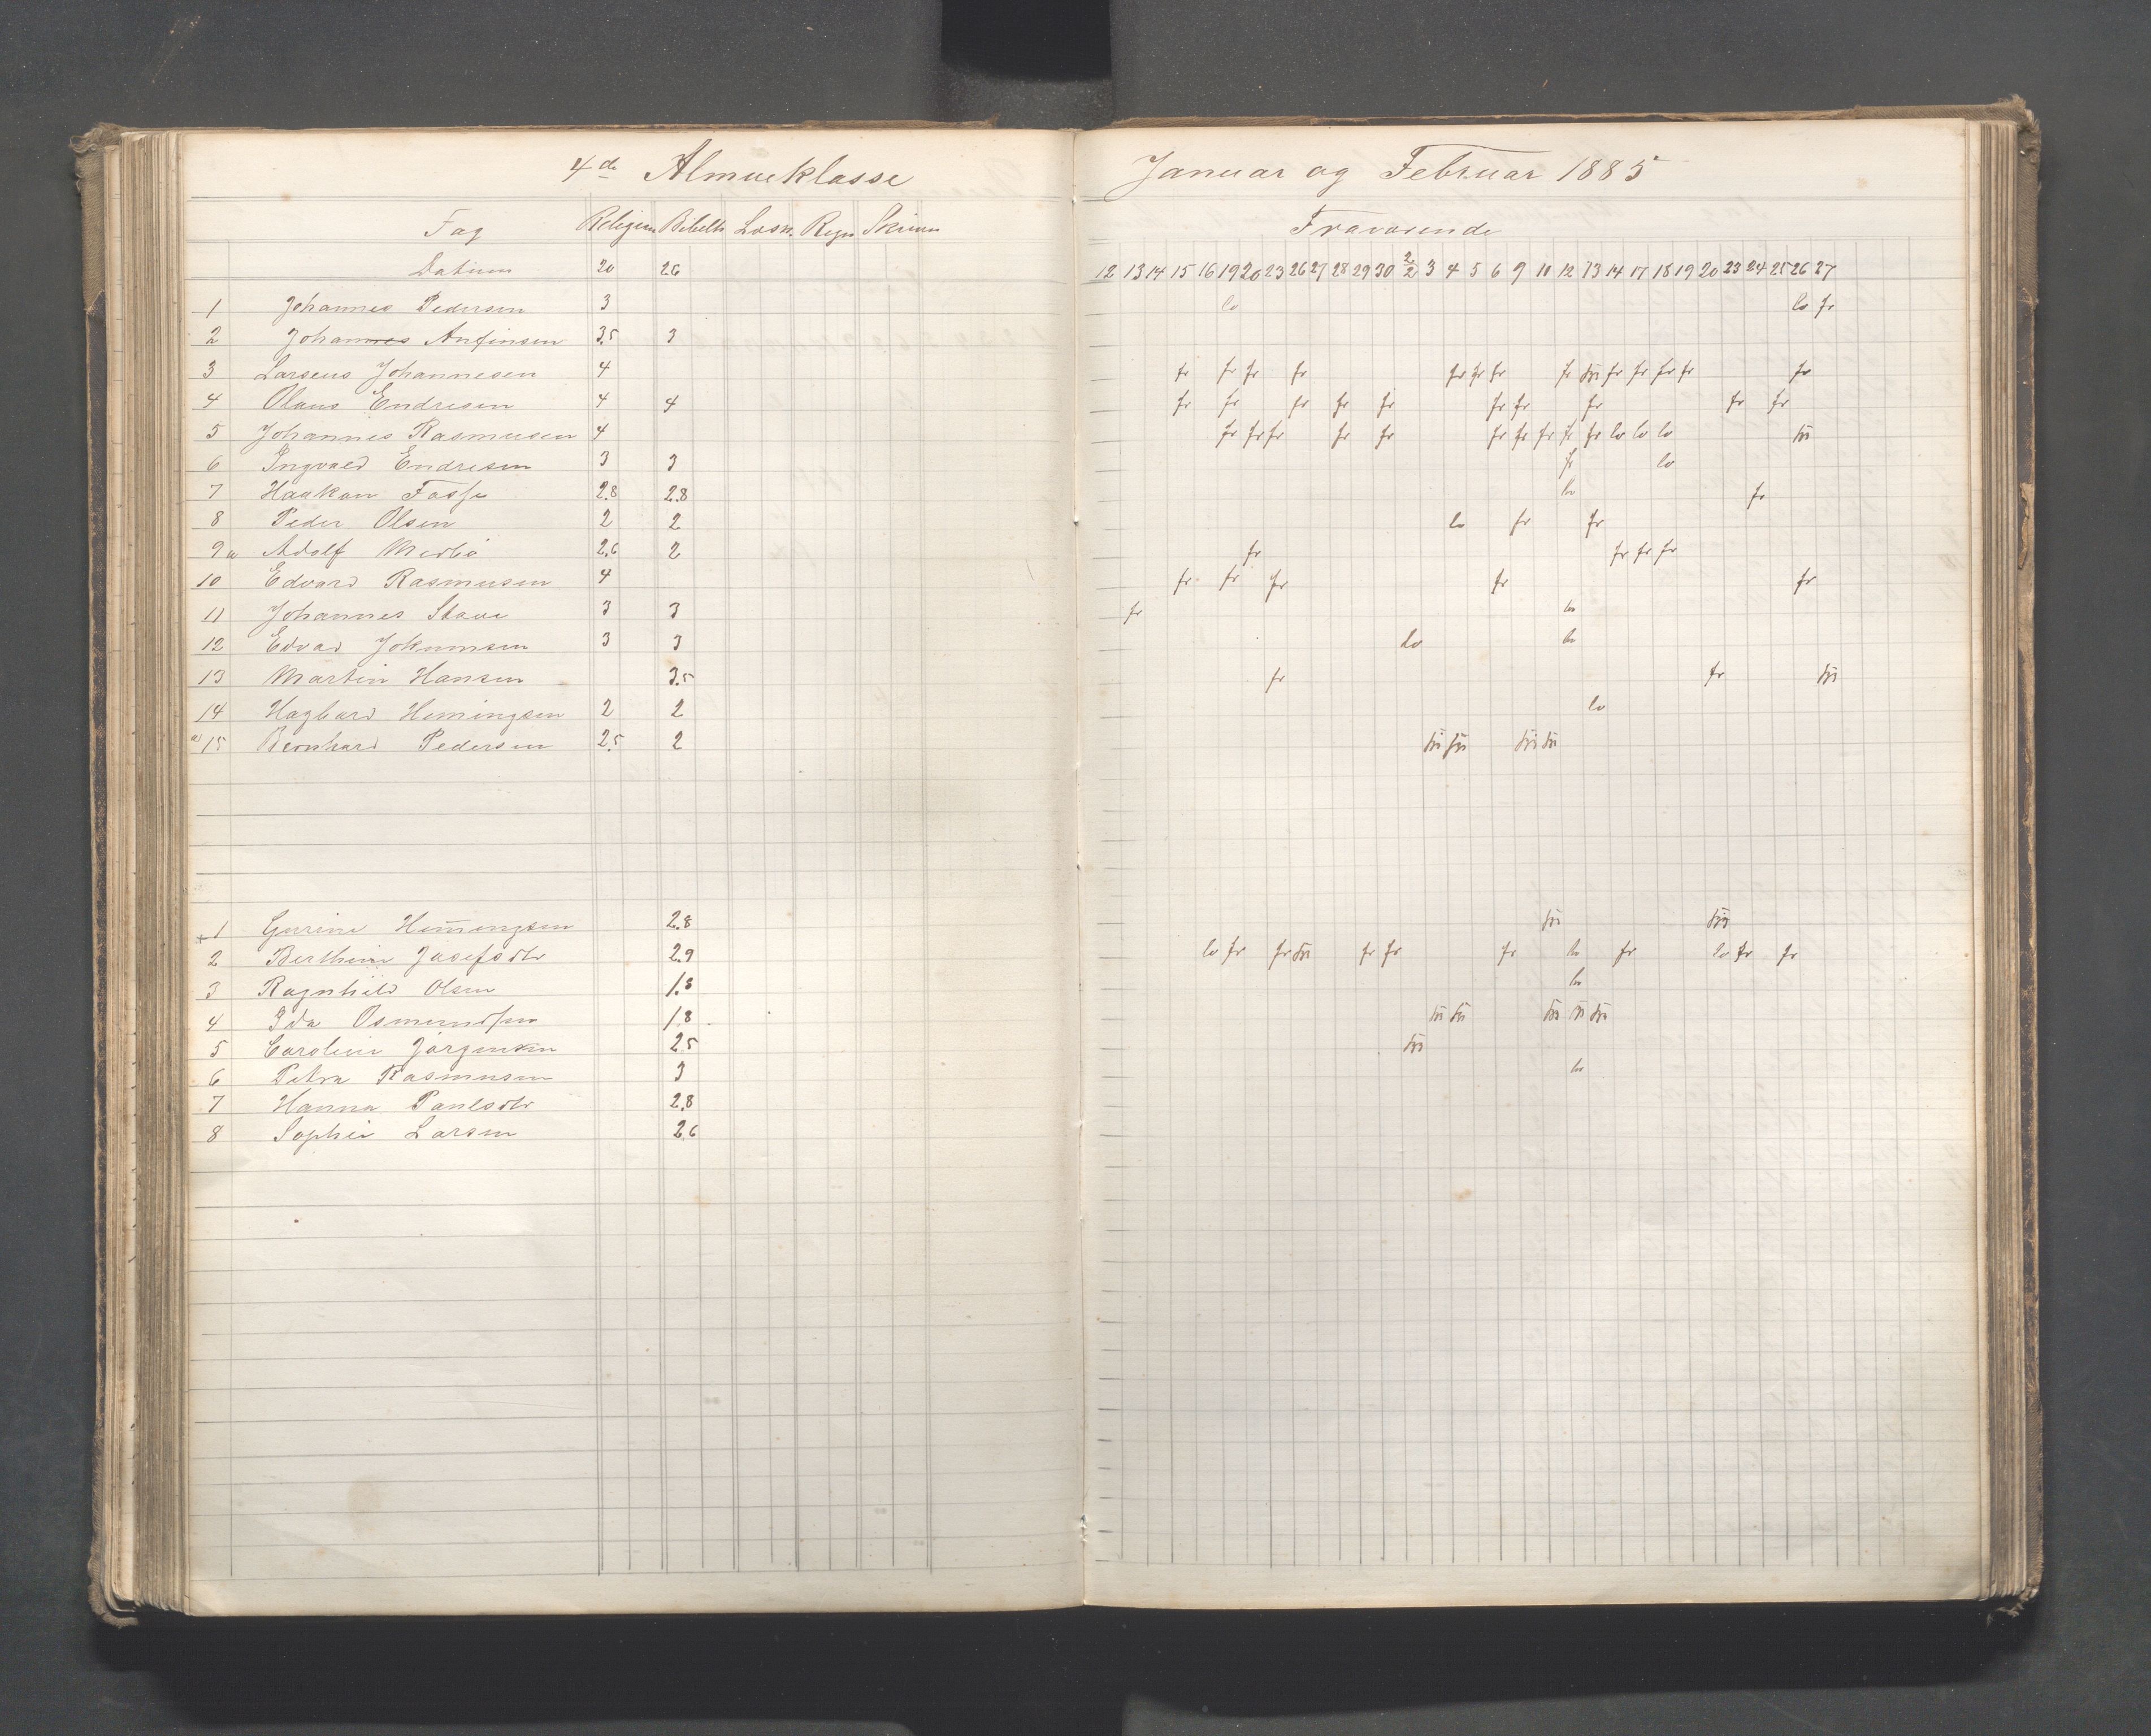 4de Almueklasse
Fag Religion Bibelh Læsn. Regn Skrivn
Datum 20 26
1 Johannes Pedersen 3
2 Johannes Anfinsen 3,5 3
3 Larseus Johannesen 4
4 Olaus Endresen 4 4
5 Johannes Rasmusen 4
6 Ingvald Endresen 3 3
7 Haakon Fosse 2,8 2,8
8 Peder Olsen 2 2
9 a Adolf 2,6 2
10 Edvard Rasmusen 4
11 Johannes Stave 3 3
12 Edvard Jokumsen 3 3
13 Martin Hansen 3,5
14 Hagbard Hemingsen 2 2
a 15 Bernhard Pedersen 2,5 2
1 Gurine Hem̄ingsen 2,8
2 Berthine Josefsdtr 2,9
3 Ragnhild Olsen 1,8
4 Ida Osmundsen 1,8
5 Caroline Jörgensen 2,5
6 Petra Rasmusen 3
7 Hanna Paulsdtr 2,8
8 Sophie Larsen 2,6
Januar og Februar 1885
Fraværende
12 13 14 15 16 19 20 23 26 27 28 29 30 2/2 3 4 5 6 9 10 12 13 14 17 18 19 20 23 24 25 26 27
lo lo fr
fr fr fr fr fr fr fr fr fr fr fr fr fr
fr fr fr fr fr fr fr fr fr fr
fr fr fr fr fr fr fr fr fr fr lo lo lo
fr lo
lo fr
lo fr fr
fr fr fr fr
fr fr fr fr fr
fr lo
lo lo
fr fr
lo
lo fr fr fr fr fr lo fr lo fr fr
lo
lo